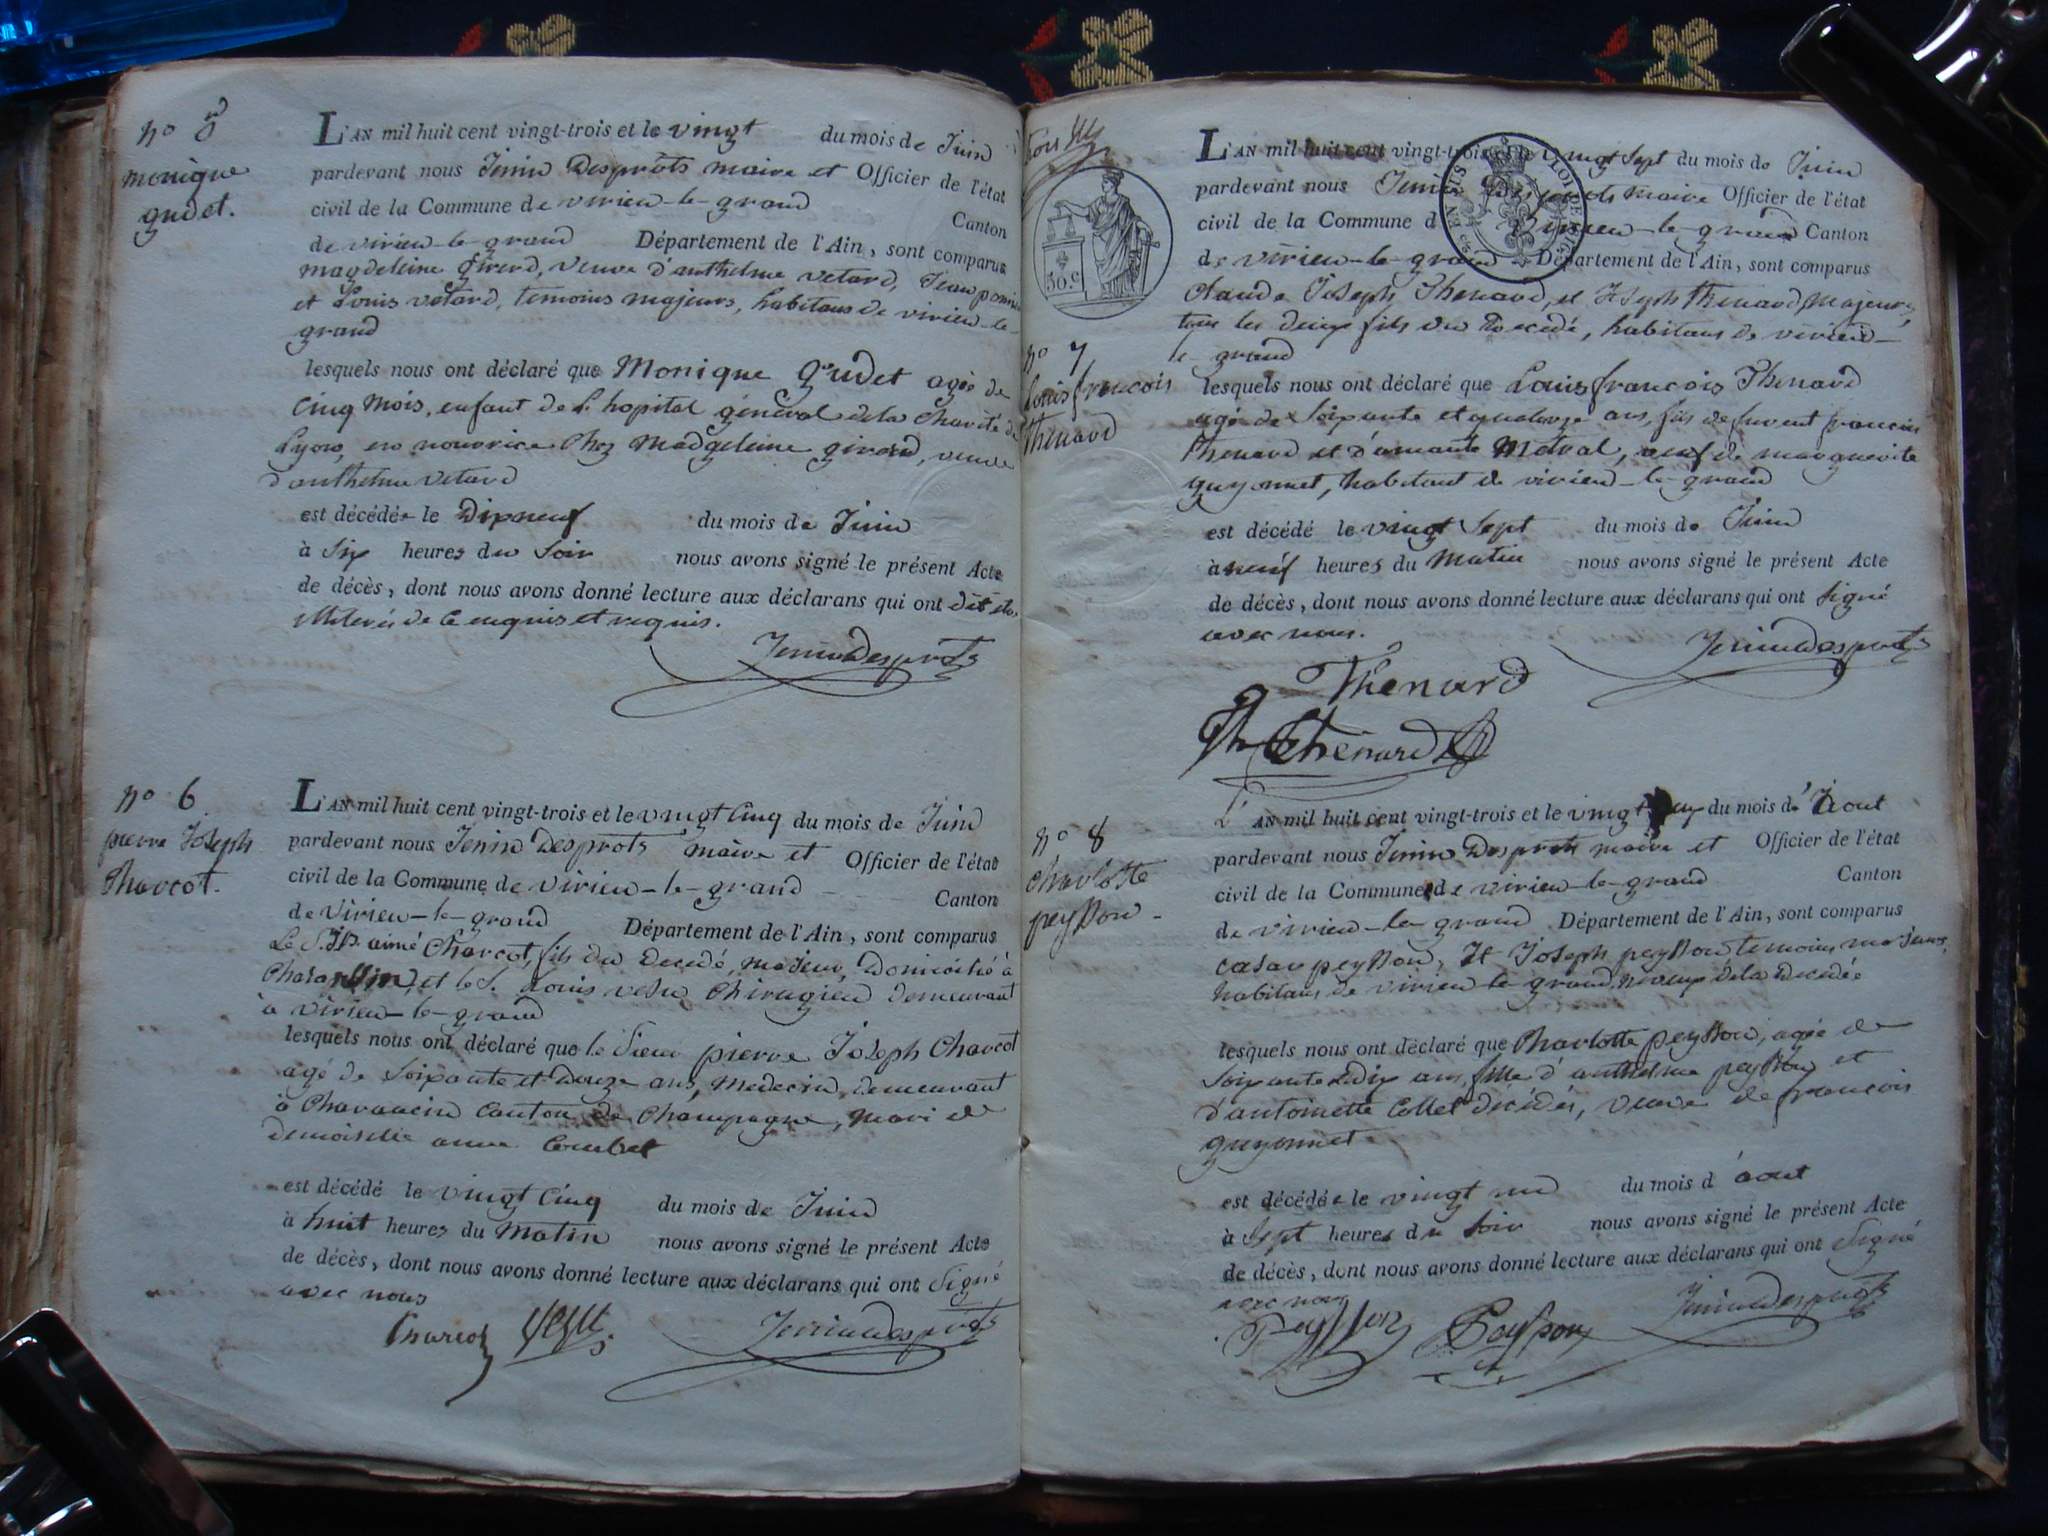 no 5
monique
gudet.
L'AN mil huit cent vingt-trois et le vingt du mois de Juin
pardevant nous Jenin Desprots maire et Officier de l'état
civil de la Commune de virieu-le-grand Canton
de virieu-le-grand Département de l'Ain, sont comparus
magdeleine girerd, veuve d'anthelme vetard, Jean
et Louis vetard, temoins majeurs, habitans de virieu-le-
grand
lesquels nous ont déclaré que Monique gudet agée de
Cinq Mois, enfant de L'hopital général dela Charité de
Lyon, en nourrice chez Madgeleine girerd, veuve
d'anthelme vetard
est décédée le Dixneuf du mois de Juin
à Six heures du Soir nous avons signé le présent Acte
de décès, dont nous avons donné lecture aux déclarans qui ont dit etre
illiterés de ce enquis et requis.
Jenin Desprots
no 6
pierre Joseph
Charcot.
L'AN mil huit cent vingt-trois et le vingt Cinq du mois de Juin
pardevant nous Jenin Desprots maire et Officier de l'état
civil de la Commune de virieu-le-grand Canton
de virieu-le-grand Département de l'Ain, sont comparus
Le S. aimé Charcot, fils du decedé, majeur, Domicilié à
et le S. Louis vesu Chirugien demeurant
à virieu-le-grand
lesquels nous ont déclaré que le Sieur pierre Joseph Charcot
agé de Soixante et Douze ans, Medecin, demeurant
à Charancin Canton de Champagne, mari de
demoiselle anne
est décédé le vingt Cinq du mois de Juin
à huit heures du Matin nous avons signé le présent Acte
de décès, dont nous avons donné lecture aux déclarans qui ont Signé
avec nous
Charcot Vesu Jenin Desprots
50 c.
LOI DE
no 7
Louis francois
Thenard
L'AN mil huit cent vingt-trois et le vingt Sept du mois de Juin
pardevant nous Jenin Desprots Maire Officier de l'état
civil de la Commune de Virieu-le-grand Canton
de virieu-le-grand Département de l'Ain, sont comparus
Claude Joseph Thenard, et Joseph thenard, Majeurs,
tous les deux fils du Decedé, habitans de virieu-
le-grand
lesquels nous ont déclaré que Louis francois Thenard
agé de Soixante et quatorze ans, fils de furent francois
thenard et d'amante veuf de marguerite
guyonnet, habitant de virieu-le-grand
est décédé le vingt Sept du mois de Juin
à neuf heures du Matin nous avons signé le présent Acte
de décès, dont nous avons donné lecture aux déclarans qui ont Signé
avec nous.
Jenin Desprots
Thenard
Thenard
no 8
Charlotte
peysson-
L'AN mil huit cent vingt-trois et le vingt du mois d'Aout
pardevant nous Jenin Desprots maire et Officier de l'état
civil de la Commune de virieu-le-grand Canton
de virieu-le-grand Département de l'Ain, sont comparus
Cesar peysson, Et Joseph peysson temoins majeurs,
habitans de virieu le grand, neveux dela decedée
lesquels nous ont déclaré que Charlotte peysson, agée de
Soixante dix ans, fille d'anthelme peysson et
d'antoinette Collet decedés, veuve de francois
guyonnet
est décédée le vingt un du mois d'aout
à Sept heures du Soir nous avons signé le présent Acte
de décès, dont nous avons donné lecture aux déclarans qui ont Signé
avec nous
Peysson Peysson Jenin Desprots